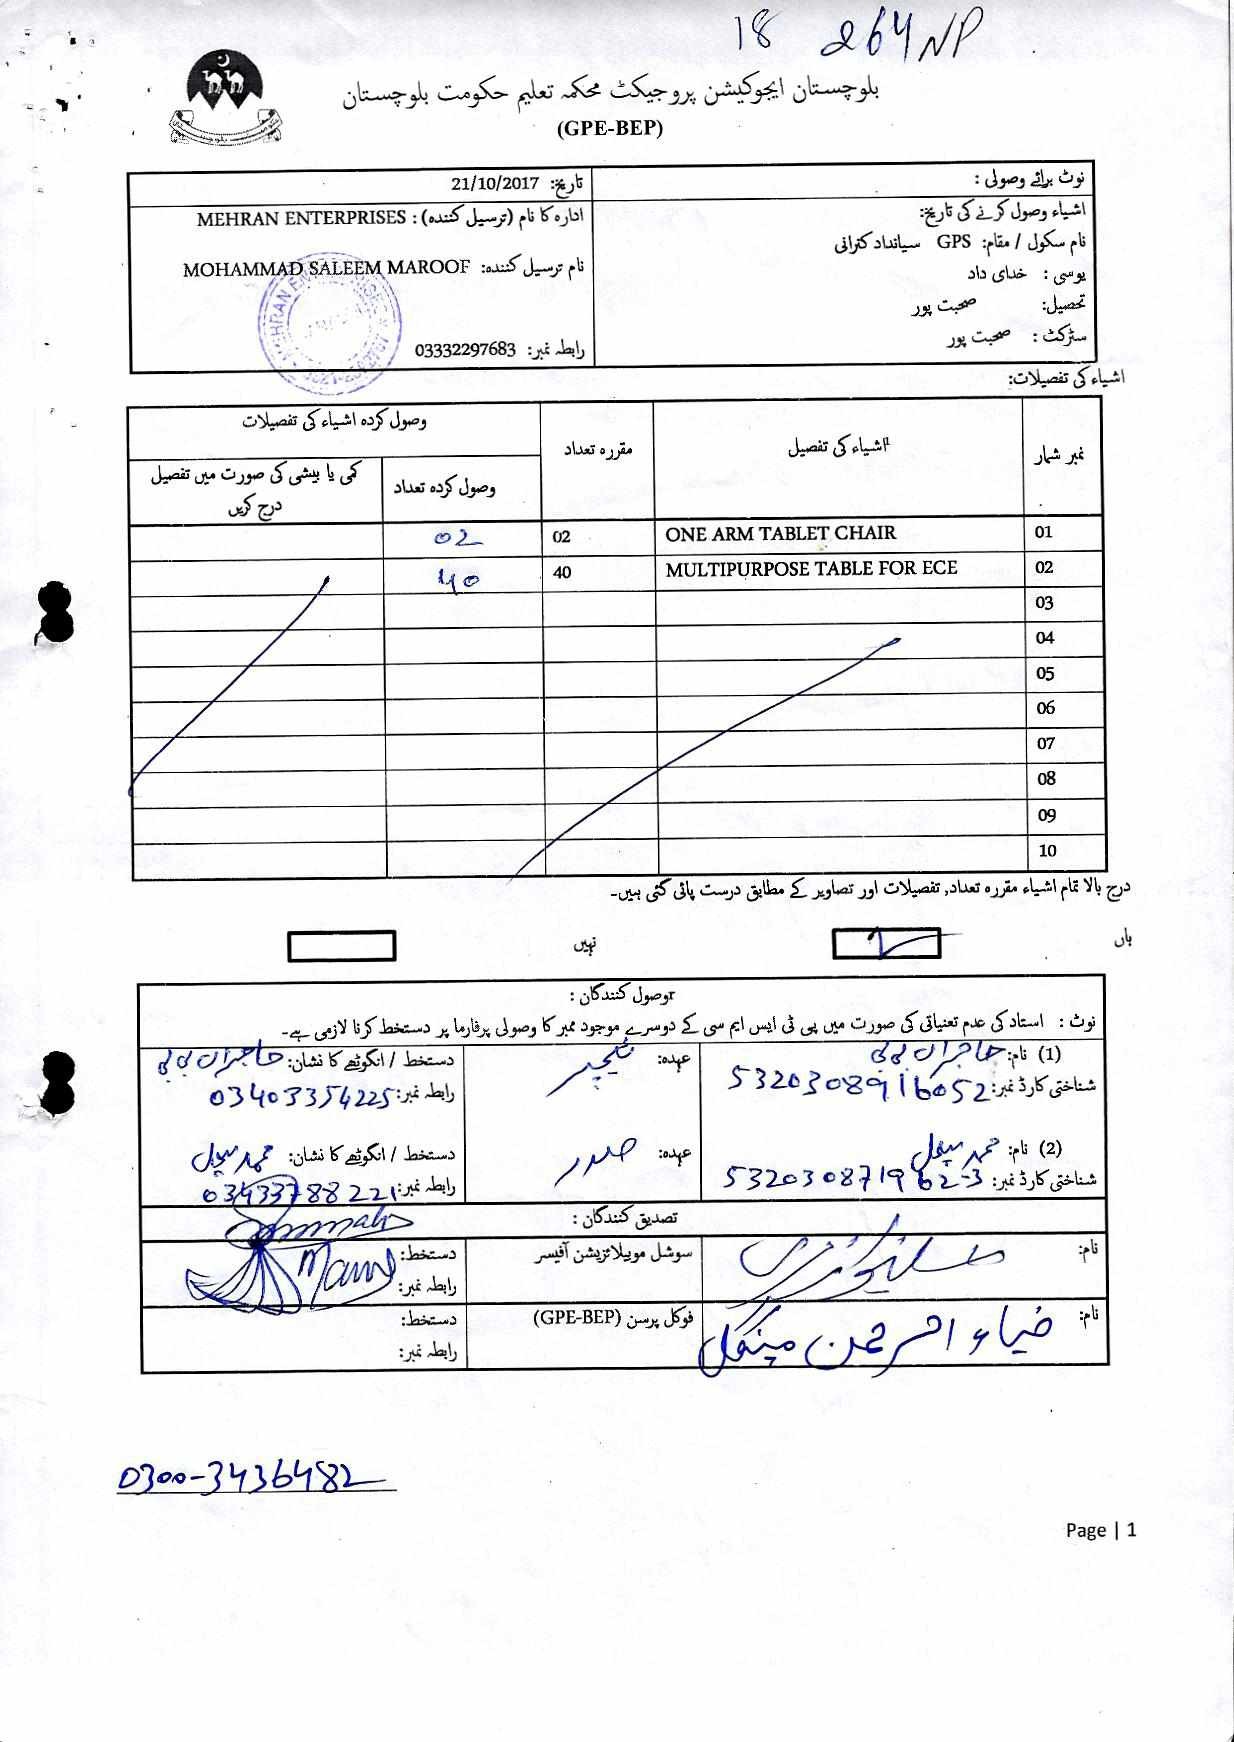 18 264 NP
بلوچستان ایجوکیشن پروجیکٹ محکمہ تعلیم حکومت بلوچستان
(GPE-BEP)
نوٹ برائے وصولی :
تاریخ: 21/10/2017
اشیاء وصول کرنے کی تاریخ:
نام سکول / مقام: GPS سیانداد کترانی
یوسی : خدای داد
تحصیل: صحبت پور
سٹرکٹ : صحبت پور
ادارہ کا نام (ترسیل کنندہ) : MEHRAN ENTERPRISES
نام ترسیل کنندہ: MOHAMMAD SALEEM MAROOF
رابطہ نمبر: 03332297683
اشیاء کی تفصیلات:
نمبر شمار اشیاء کی تفصیل مقررہ تعداد وصول کردہ اشیاء کی تفصیلات
وصول کردہ تعداد کمی یا بیشی کی صورت میں تفصیل درج کریں
01 ONE ARM TABLET CHAIR 02 02
02 MULTIPURPOSE TABLE FOR ECE 40 40
03
04
05
06
07
08
09
10
درج بالا تمام اشیاء مقررہ تعداد, تفصیلات اور تصاویر کے مطابق درست پائی گئی ہیں۔
ہاں نہیں
وصول کنندگان :
نوٹ : استاد کی عدم تعنیاتی کی صورت میں پی ٹی ایس ایم سی کے دوسرے موجود ممبر کا وصولی پرفارما پر دستخط کرنا لازمی ہے۔
(1) نام: حاجران بی بی عہدہ: ٹیچر دستخط / انگوٹھے کا نشان: حاجران بی بی
شناختی کارڈ نمبر: 5320308916052 رابطہ نمبر: 03403354225
(2) نام: محمد عہدہ: صدر دستخط / انگوٹھے کا نشان: محمد
شناختی کارڈ نمبر: 532030871962-3 رابطہ نمبر: 03433788221
تصدیق کنندگان :
نام: سوشل موبیلائزیشن آفیسر دستخط:
رابطہ نمبر:
نام: ضیاء الرحمن مینگل فوکل پرسن (GPE-BEP) دستخط:
رابطہ نمبر:
0300-3436482
Page | 1